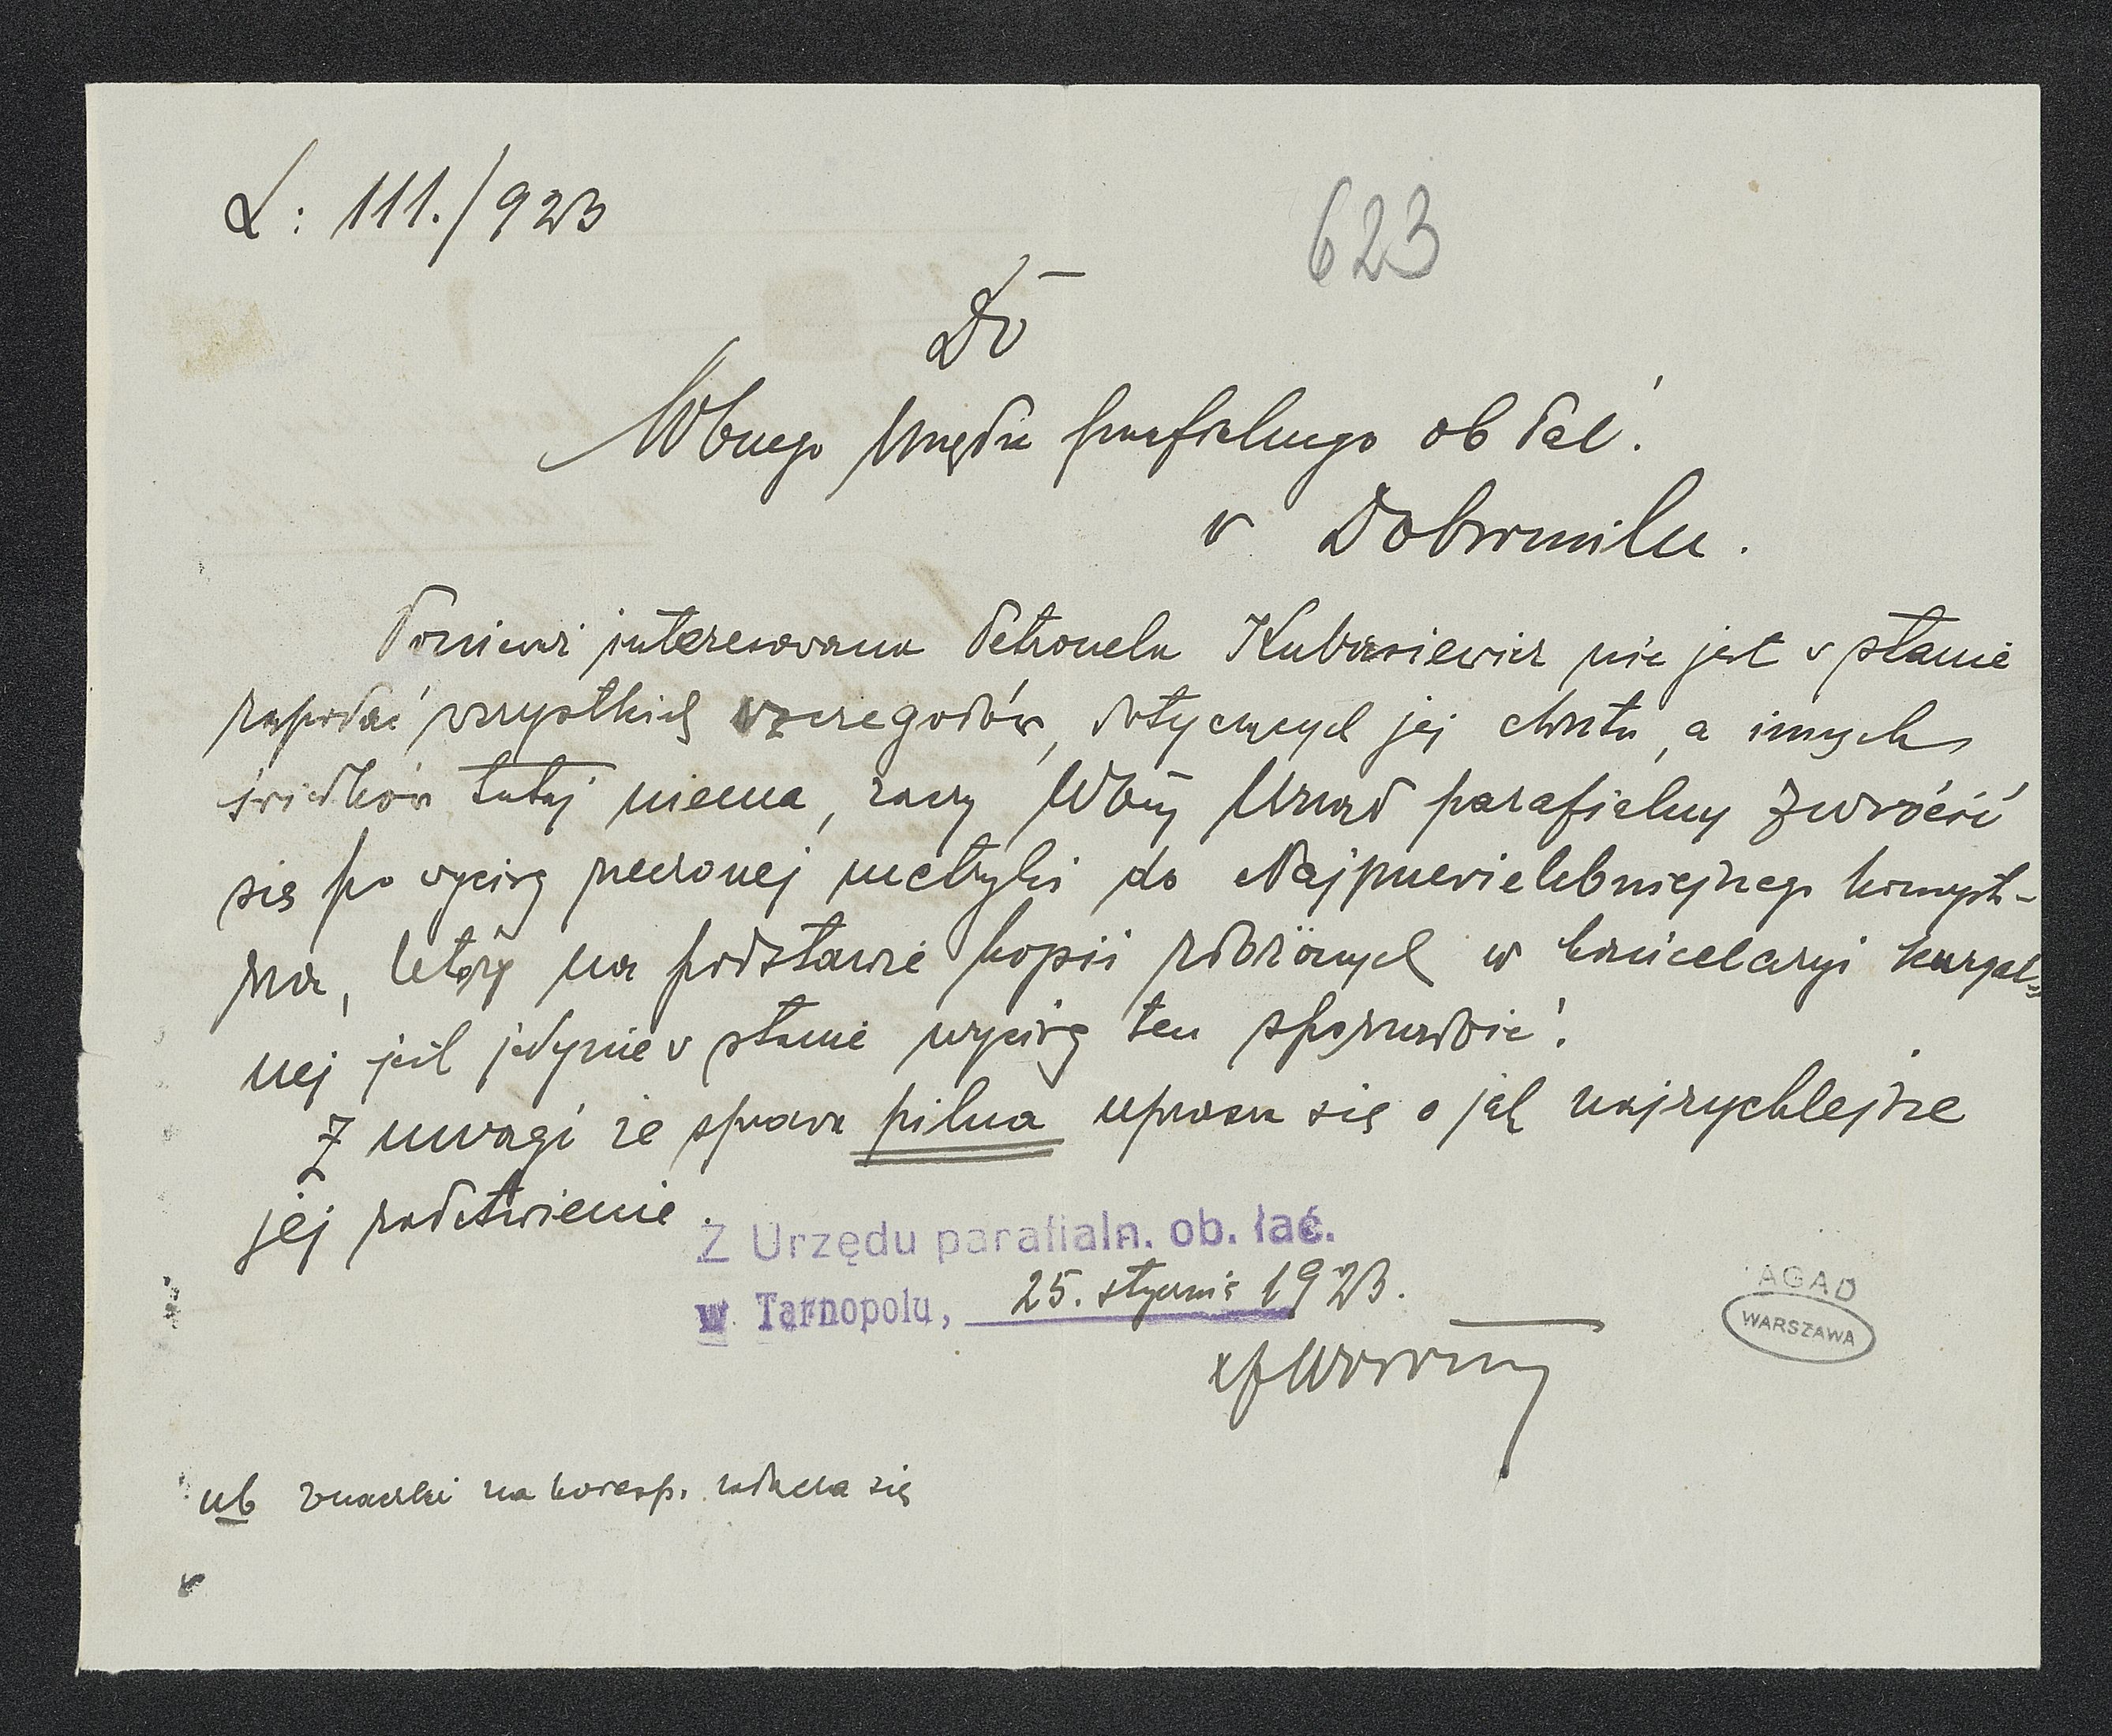 L: 111./923
623
Do
Wbnego Urzędu parafialnego ob łać.
w Dobromilu.
Ponieważ interesowana Petronela Kubasiewicz nie jest w stanie
zapodać wszystkich szczegółów, dotyczących jej chrztu, a innych
świadków tutaj niema, raczy Wbny Urząd parafialny zwrócić
się po wyciąg pewnej metryki do Najprzewielebniejszego konsysto-
rza, który na podstawie kopii złożonych w kancelaryi konsystor-
nej jest jedynie w stanie wyciąg ten sporządzić.
Z uwagi że sprawa pilna uprasza się o jak najrychlejsze
jej załatwienie.
Z Urzędu parafialn. ob. łać.
w Tarnopolu, 25. stycznia 1923.
AGAD
WARSZAWA
nb znaczki na koresp. załącza się